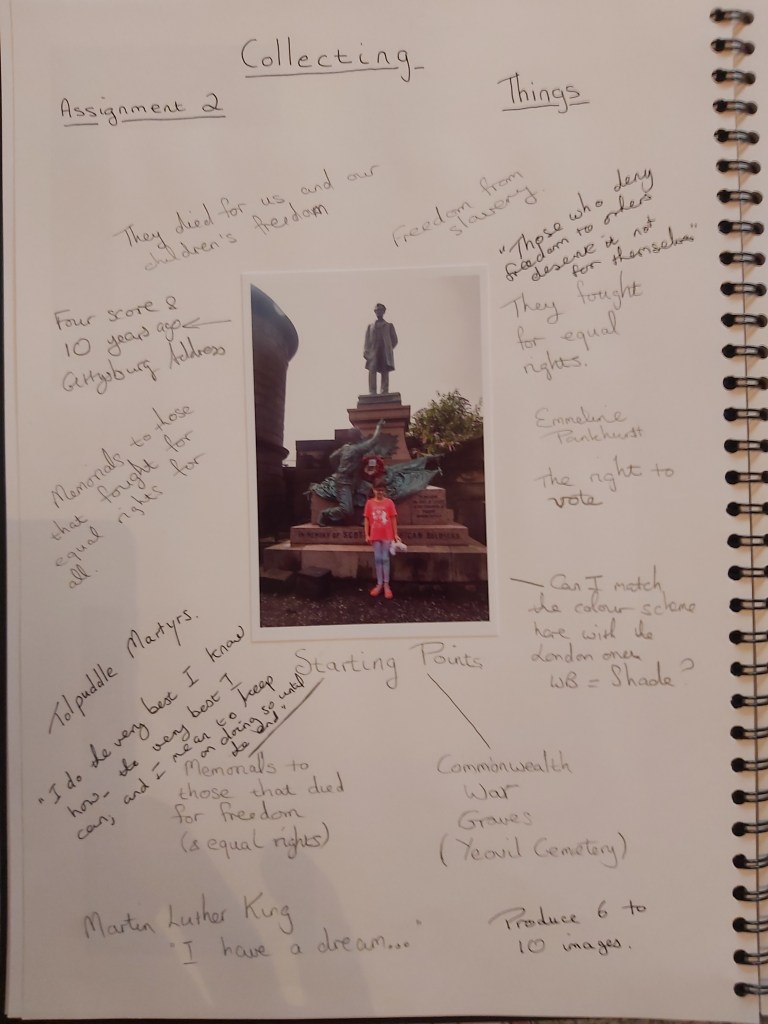 Collecting
Assignment 2
Things
They died for us and our
children's freedom
Freedom from
slavery.
"Those who deny
freedom to others
deserve it not
for themselves"
Four score &
10 years ago
Gettysburg Address
They fought
for equal
rights.
Emmeline
Pankhurst
The right to
vote
Memorials to those
that fought for
equal rights for
all.
IN MEMORY OF SCOTTISH AMERICAN SOLDIERS
Can I match
the colour scheme
here with the
London ones
WB = Shade?
Tolpuddle Martyrs.
Starting Points
"I do the very best I know
how - the very best I
can; and I mean to keep
on doing so until
the end"
Memorials to
those that died
for freedom
(& equal rights)
Commonwealth
War
Graves
(Yeovil Cemetery)
Martin Luther King
"I have a dream..."
Produce 6 to
10 images.